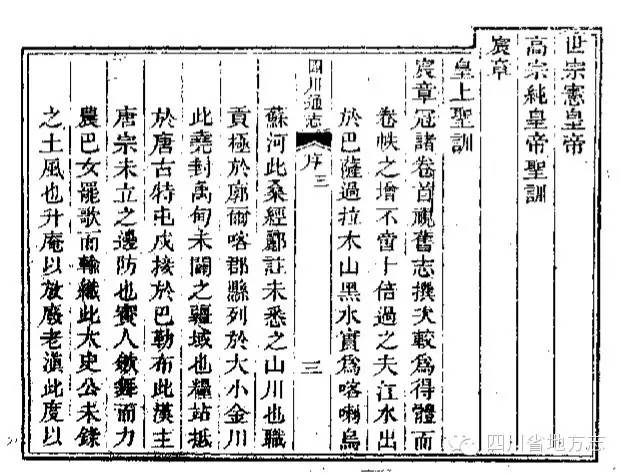 世宗憲皇帝
高宗純皇帝聖訓
宸章
皇上聖訓
宸章冠諸卷首視舊志撰次較爲得體而
卷帙之增不啻十倍過之夫江水出
於巴薩過拉木山黑水實爲喀喇烏
四川通志
序三
三
蘇河此桑經酈註未悉之山川也職
貢極於廓爾喀郡縣列於大小金川
此堯封禹甸未闢之疆域也糧站抵
於唐古特屯戍接於巴勒布此漢主
唐宗未立之邊防也賨人歛舞而力
農巴女罷歌而輸織此太史公未錄
之土風也升庵以放廢老滇此度以
四川省地方志